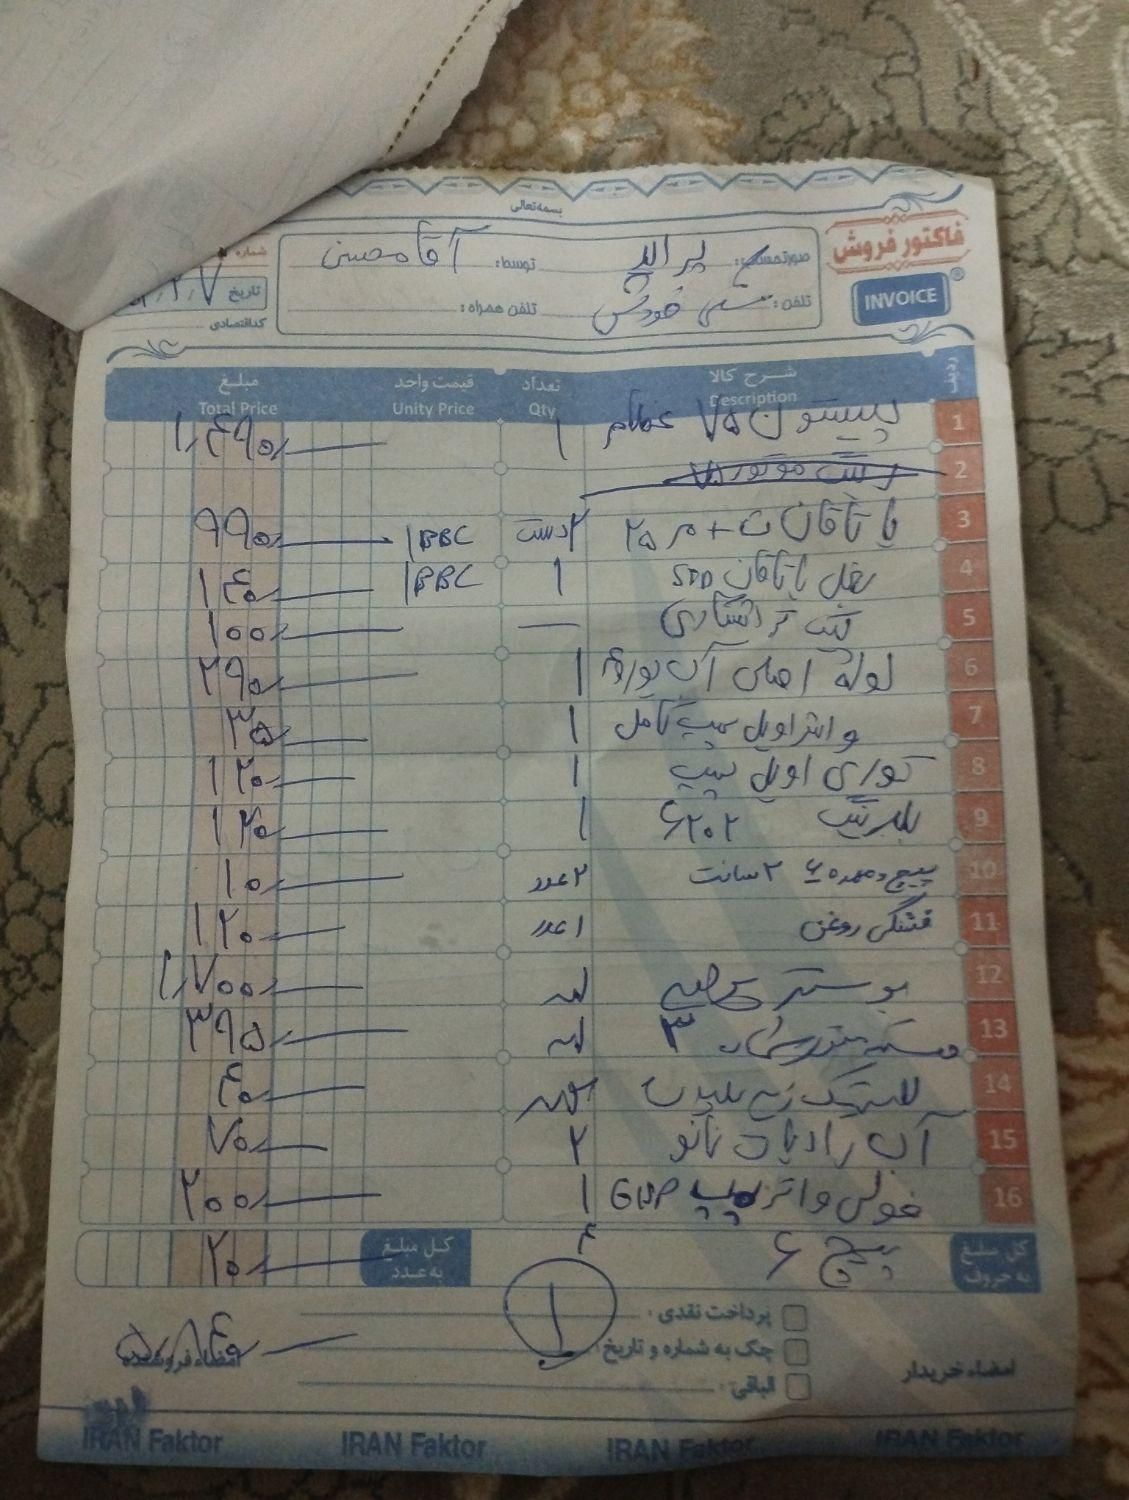 بسمه‌تعالی
فاکتور فروش
INVOICE
صورتحساب: پراید توسط: آقا محسن
تلفن: تلفن همراه:
شماره
تاریخ
کد اقتصادی
ردیف شرح کالا تعداد قیمت واحد مبلغ
Description Qty Unity Price Total Price
1 پیستون ۷۵ عظام ۱ ۱,۴۹۰
2
3 یاتاقان ث + م ۲۵ ۲ دست BBC ۹۹۰
4 بغل یاتاقان STD ۱ BBC ۱۴۰
5 ۱۰۰
6 لوله اصلی آب ۱ ۲۹۰
7 واشر اویل پمپ کامل ۱ ۳۵
8 توری اویل پمپ ۱ ۱۲۰
9 بلبرینگ ۶۲۰۲ ۱ ۱۲۰
10 پیچ و مهره ۶ ۲ سانت ۲ عدد ۱۰
11 فشنگی روغن ۱ عدد ۱۲۰
12 بوستر ۱,۷۰۰
13 ۳ ۳۹۵
14 ۴۰
15 آب رادیات نانو ۲ ۷۰
16 فولی واتر پمپ GISP ۱ ۲۰۰
کل مبلغ به حروف پیچ ۶ ۴ کل مبلغ به عدد ۲۰
پرداخت نقدی:
چک به شماره و تاریخ:
الباقی:
۱
امضاء خریدار امضاء فروشنده
IRAN Faktor IRAN Faktor IRAN Faktor IRAN Faktor